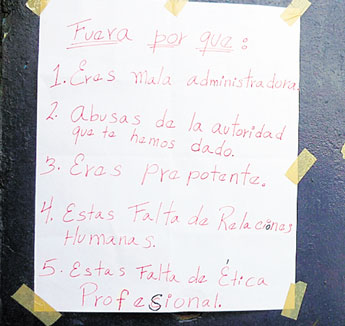 Fuera por que:
1. Eres mala administradora.
2. Abusas de la autoridad
que te hemos dado.
3. Eres prepotente.
4. Estas Falta de Relaciones
Humanas.
5. Estas Falta de Ética
Profesional.